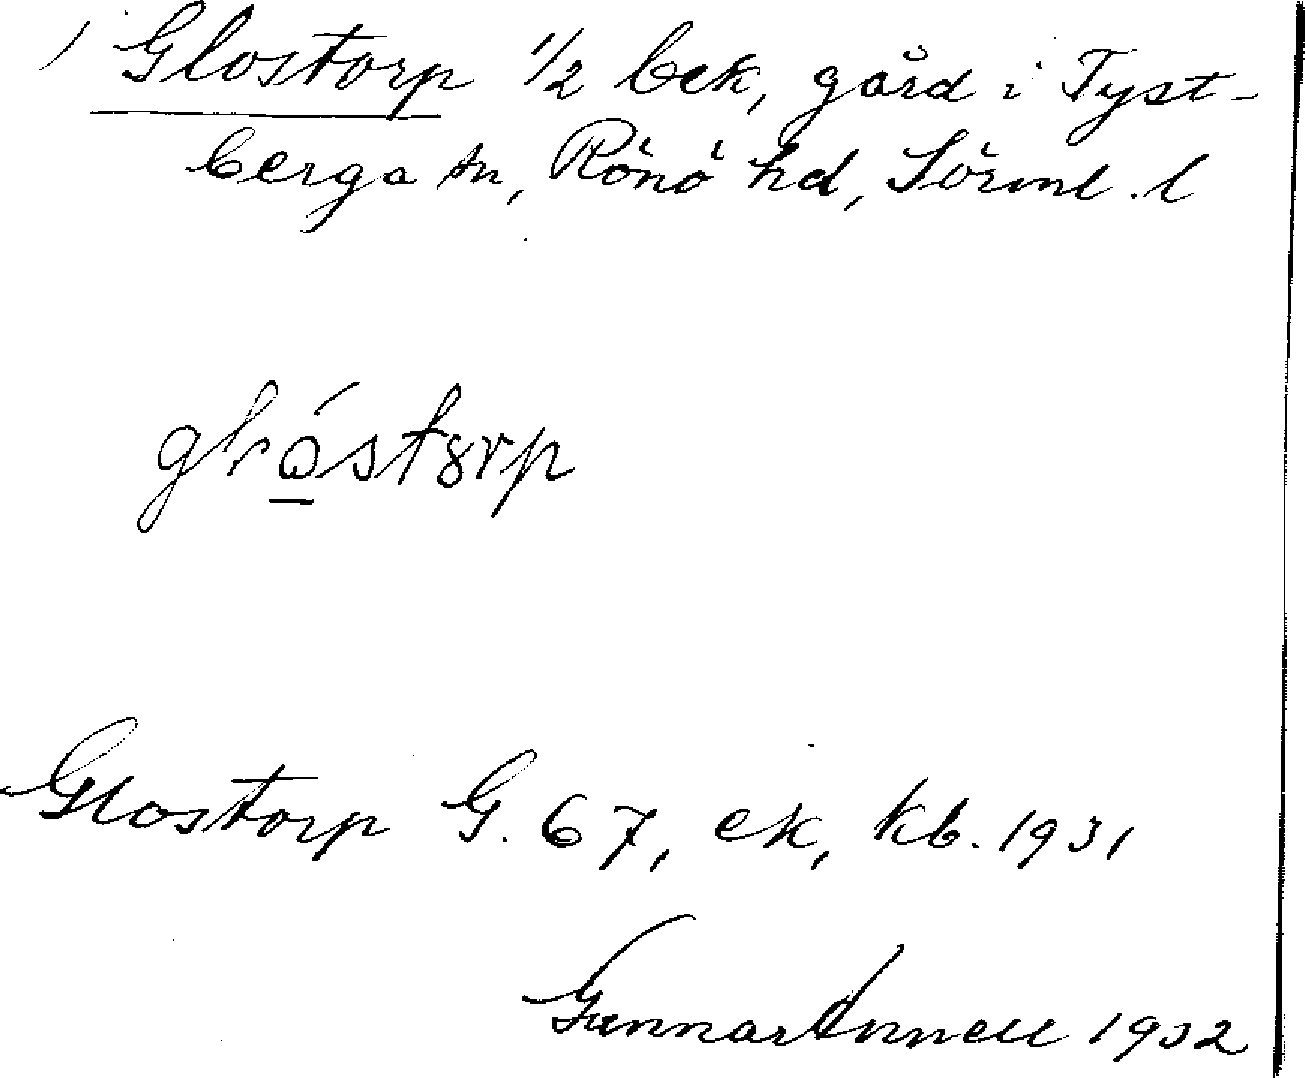 / Glostorp 1/2 bek, gård i Tyst-
berga sn, Rönö hd, Sörml. l
Glostorp G. 67, ek, kb. 1931
Gunnar Annell 1932